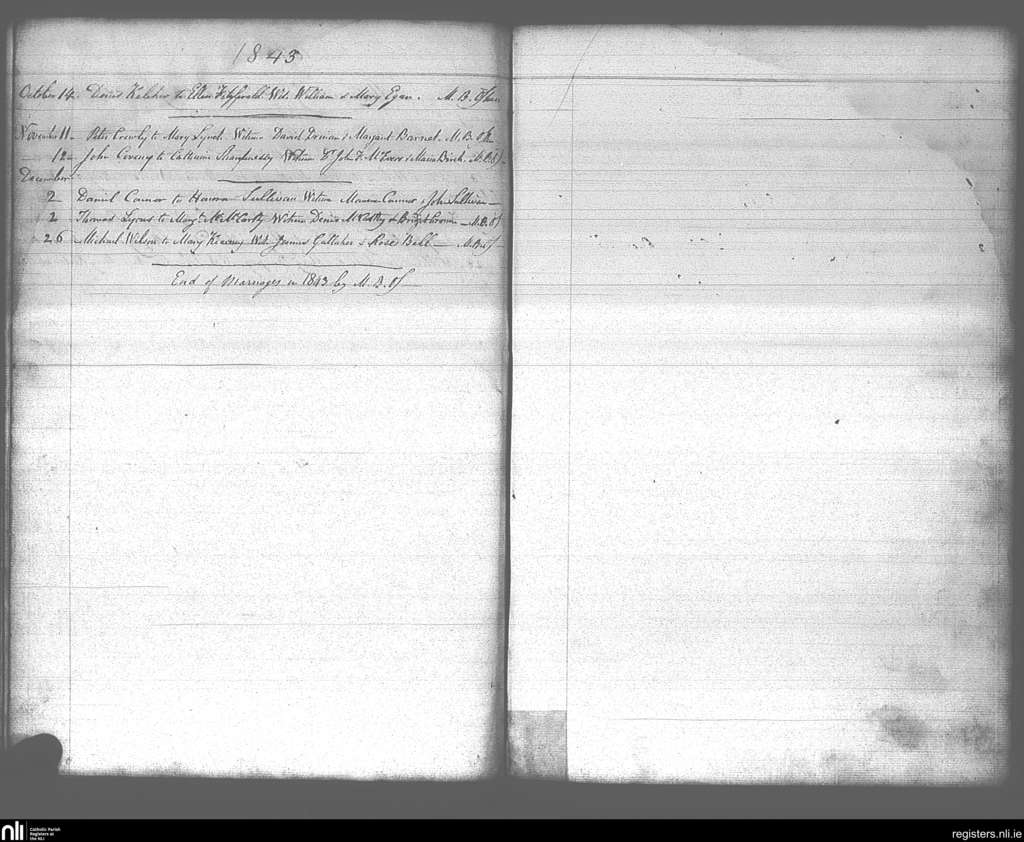 1843
October 14. Denis Kelcher to Ellen Fitzgerald. Wit. William & Mary Egan. M. B. O'Shea
November 11 - Peter Crowly to Mary Lynch Witness David & Margaret Barnet. M. B. O'S
- 12 - John to Catherine Witness John F. & Maria M. B. O'S
December
2 Daniel Connor to Honora Sullivan Witness Connor & John Sullivan -
2 - Thomas Lyons to Margt. McCarthy Witness Denis McCarthy & Bridget - M. B. O'S
26 Michael Wilson to Mary Kearney Wit. James Gallaher & Rose Bell - M. B. O'S
End of Marriages in 1843 by M. B. O'S -
nli Catholic Parish Registers at the NLI
registers.nli.ie